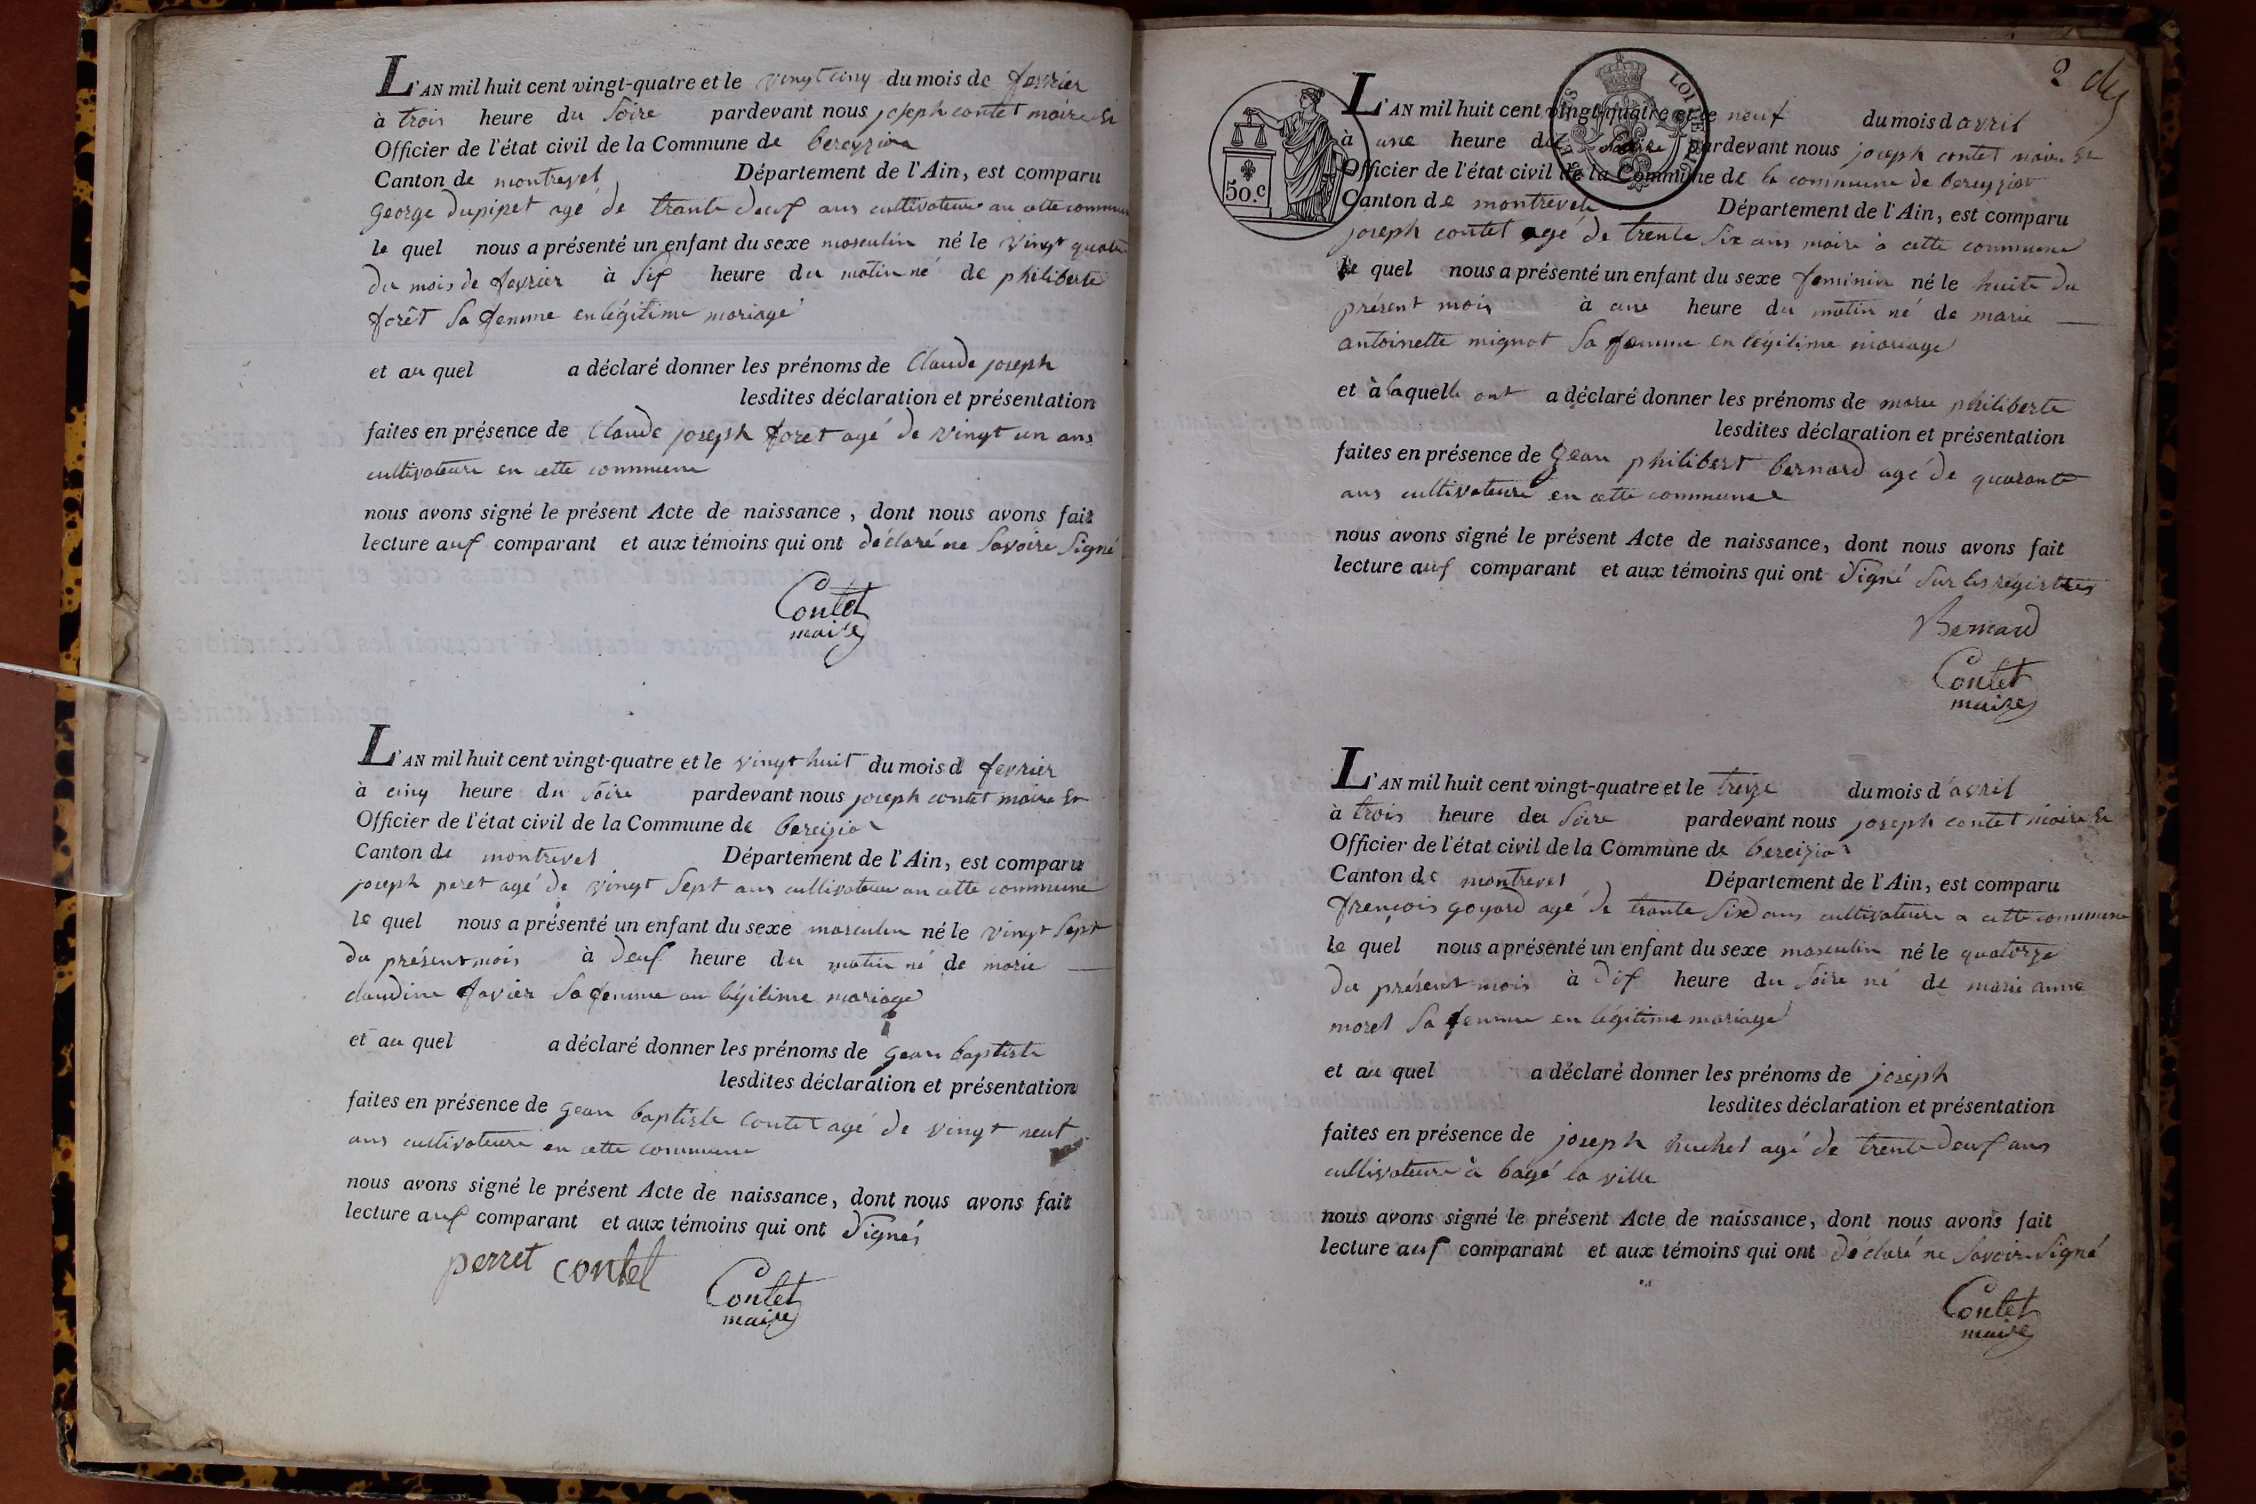 L'AN mil huit cent vingt-quatre et le vingt cinq du mois de fevrier
à trois heure du soire pardevant nous joseph contet maire et
Officier de l'état civil de la Commune de bereyziat
Canton de montrevel Département de l'Ain, est comparu
George dupipet agé de trante deux ans cultivateure au cette commune
le quel nous a présenté un enfant du sexe masculin né le vingt quatre
du mois de fevrier à six heure du matin né de philiberte
forêt sa femme en légitime mariage
et au quel a déclaré donner les prénoms de Claude joseph
lesdites déclaration et présentation
faites en présence de Claude joseph foret agé de vingt un ans
cultivateure en cette commune
nous avons signé le présent Acte de naissance, dont nous avons fait
lecture aux comparant et aux témoins qui ont déclaré ne savoire signé
Contet
maire
L'AN mil huit cent vingt-quatre et le vingt huit du mois d fevrier
à cinq heure du soire pardevant nous joseph contet maire et
Officier de l'état civil de la Commune de bereiziat
Canton de montrevel Département de l'Ain, est comparu
joseph peret agé de vingt sept ans cultivateur au cette commune
le quel nous a présenté un enfant du sexe masculin né le vingt sept
du présent mois à deux heure du matin né de marie
claudine favier sa femme au légitime mariage
et au quel a déclaré donner les prénoms de gean baptiste
lesdites déclaration et présentation
faites en présence de gean baptiste contet agé de vingt neuf
ans cultivateure en cette commune
nous avons signé le présent Acte de naissance, dont nous avons fait
lecture aux comparant et aux témoins qui ont signés
perret contet
Contet
maire
2
50.c
LOI DE 1816
L'AN mil huit cent vingt-quatre et le neuf du mois d avril
à une heure du soire pardevant nous joseph contet maire et
Officier de l'état civil de la Commune de la commune de bereyziat
Canton de montrevele Département de l'Ain, est comparu
joseph contet agé de trente six ans maire à cette commune
le quel nous a présenté un enfant du sexe feminin né le huite du
présent mois à une heure du matin né de marie
antoinette mignot sa femme en légitime mariage
et à laquelle ont a déclaré donner les prénoms de marie philiberte
lesdites déclaration et présentation
faites en présence de gean philibert bernard agé de quarante
ans cultivateure en cette commune
nous avons signé le présent Acte de naissance, dont nous avons fait
lecture aux comparant et aux témoins qui ont signé sur les régistres
Bernard
Contet
maire
L'AN mil huit cent vingt-quatre et le treize du mois d'avril
à trois heure du soire pardevant nous joseph contet maire et
Officier de l'état civil de la Commune de bereiziat
Canton de montrevel Département de l'Ain, est comparu
françois goyard agé de trante six ans cultivateure a cette commune
le quel nous a présenté un enfant du sexe masculin né le quatorze
du présent mois à dix heure du soire né de marie anne
morel sa femme en légitime mariage
et au quel a déclaré donner les prénoms de joseph
lesdites déclaration et présentation
faites en présence de joseph huchet agé de trente deux ans
cultivateure à bagé la ville
nous avons signé le présent Acte de naissance, dont nous avons fait
lecture aux comparant et aux témoins qui ont déclaré ne savoir signé
Contet
maire